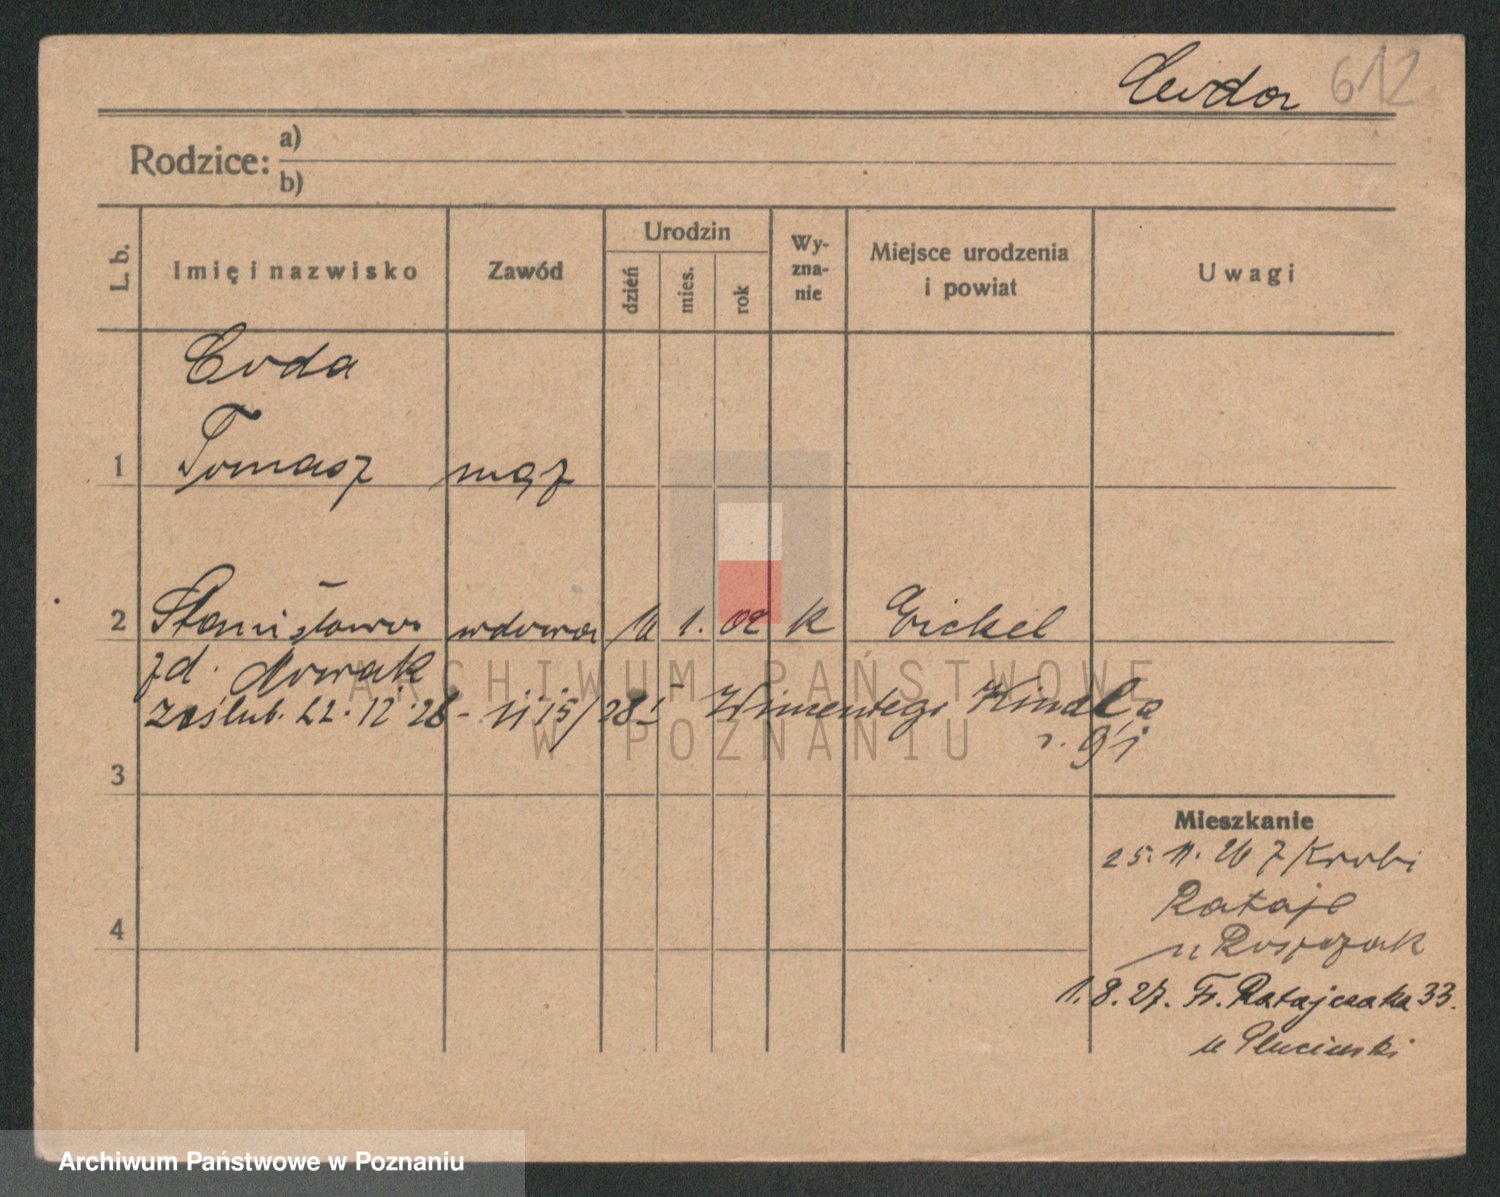 612
Rodzice:
a)
b)
L. b.
Imię i nazwisko
Zawód
Urodzin
dzień
mies.
rok
Wy-
zna-
nie
Miejsce urodzenia
i powiat
Uwagi
1
Tomasz mąż
2 Stanisława wdowa 1. 02 k Eickel
zd. Nowak
zaślub. 22.12.28 - 1115/28
3
Mieszkanie
25.11.26 z Krobi
Rataje
4
u
1.8.27. Fr. Ratajczaka 33.
u Pluciński
ARCHIWUM PAŃSTWOWE
W POZNANIU
Archiwum Państwowe w Poznaniu